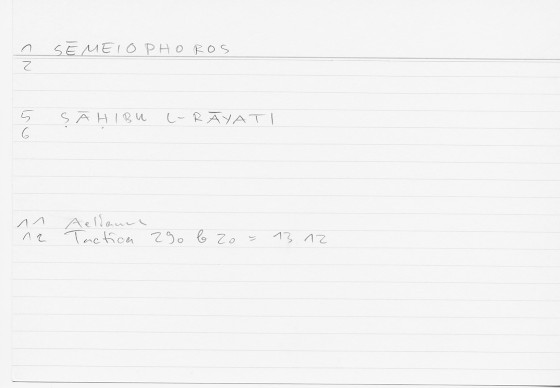 1 SĒMEIOPHOROS
2
5 ṢĀḤIBU L-RĀYATI
6
11 Aelianus
12 Tactica 290 b 20 = 13 12